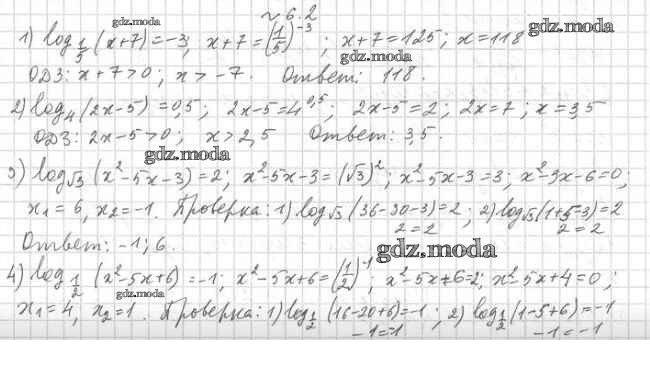 № 6.2
gdz.moda
1) log_{1/5} (x+7) = -3; x+7 = (1/5)^{-3}; x+7 = 125; x = 118
gdz.moda
gdz.moda
ОДЗ: x+7>0; x > -7. Ответ: 118.
2) log_4 (2x-5) = 0,5; 2x-5 = 4^{0,5}; 2x-5 = 2; 2x = 7; x = 3,5
ОДЗ: 2x-5>0; x>2,5 Ответ: 3,5.
gdz.moda
3) log_{√3} (x²-5x-3) = 2; x²-5x-3 = (√3)²; x²-5x-3 = 3; x²-5x-6=0;
x₁ = 6, x₂ = -1. Проверка: 1) log_{√3} (36-30-3) = 2; 2) log_{√3} (1+5-3) = 2
2 = 2 2 = 2
Ответ: -1; 6.
gdz.moda
4) log_{1/2} (x²-5x+6) = -1; x²-5x+6 = (1/2)^{-1}; x²-5x+6=2; x²-5x+4=0;
gdz.moda
x₁ = 4, x₂ = 1. Проверка: 1) log_{1/2} (16-20+6) = -1; 2) log_{1/2} (1-5+6) = -1
-1 = -1 -1 = -1